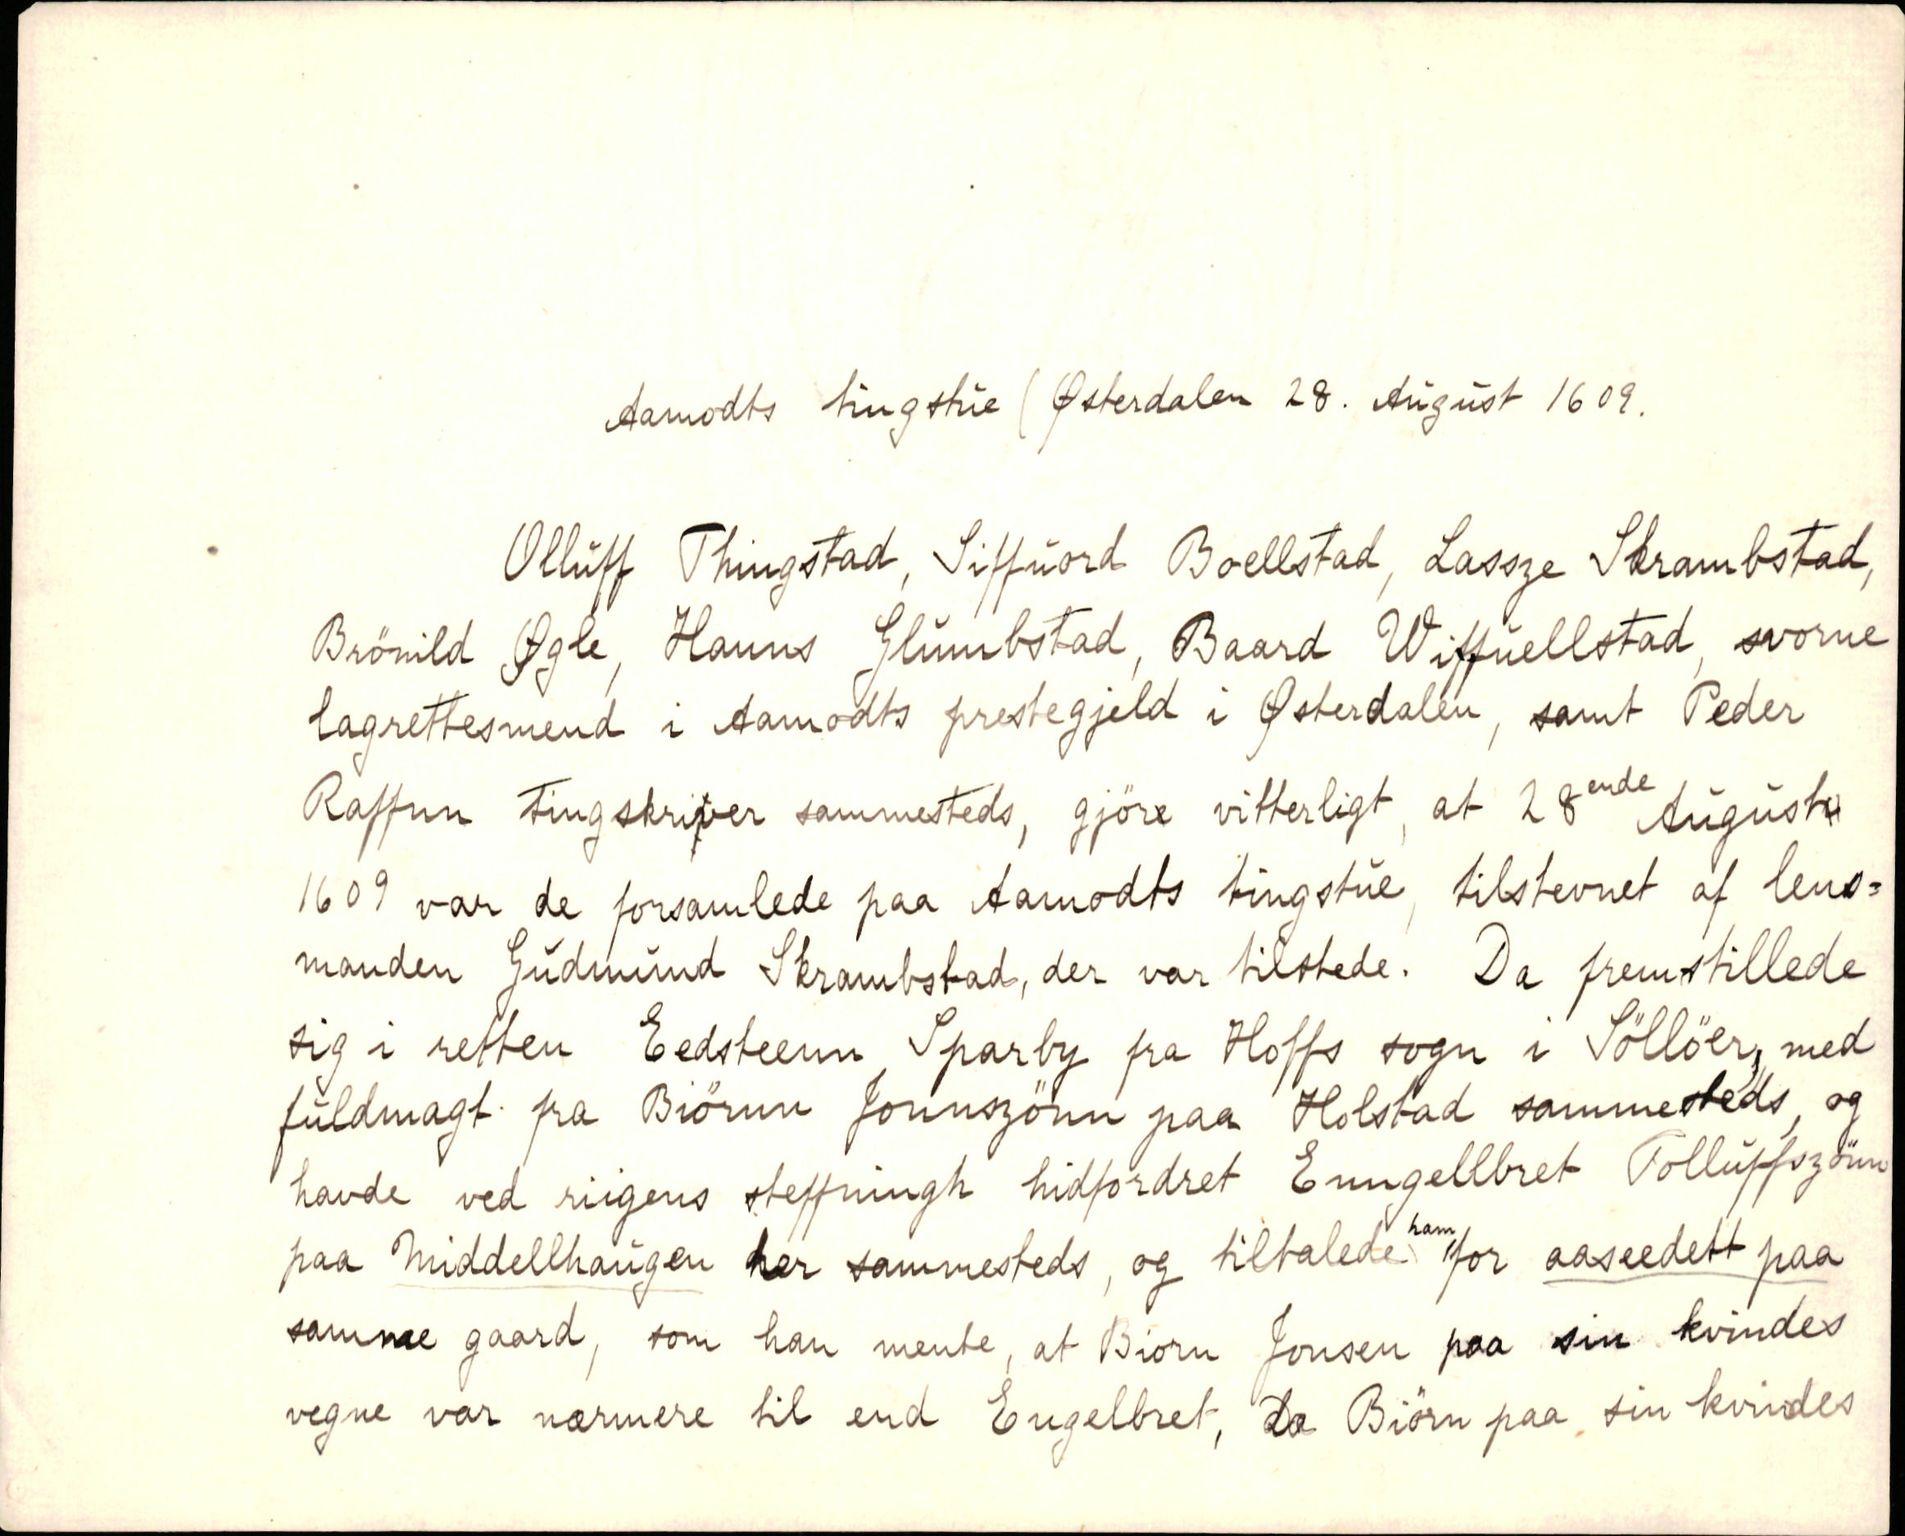 Aamodts tingstue (Østerdalen 28. August 1609.
Olluff Thingstad, Siffuord Boellstad, Lassze Skrambstad,
Brönild Øgle, Hanns Glumbstad, Baard Wiffuellstad, svorne
lagrettesmend i Aamodts prestegjeld i Østerdalen, samt Peder
Raffnn tingskriver sammesteds, gjöre vitterligt, at 28ende August
1609 var de forsamlede paa Aamodts tingstue, tilstevnet af lens=
manden Gudmund Skrambstad, der var tilstede. Da fremstillede
sig i retten Eedsteenn Sparby fra Hoffs sogn i Söllöer, med
fuldmagt fra Biörnn Jonnszönn paa Holstad sammesteds, og
havde ved riigens steffningh hidfordret Enngellbret Tolluffszönn
paa Middellhaugen her sammesteds, og tiltalede ham for aaseedett paa
samme gaard, som han mente, at Biorn Jonsen paa sin kvindes
vegne var nærmere til end Engelbret, da Biörn paa sin kvindes